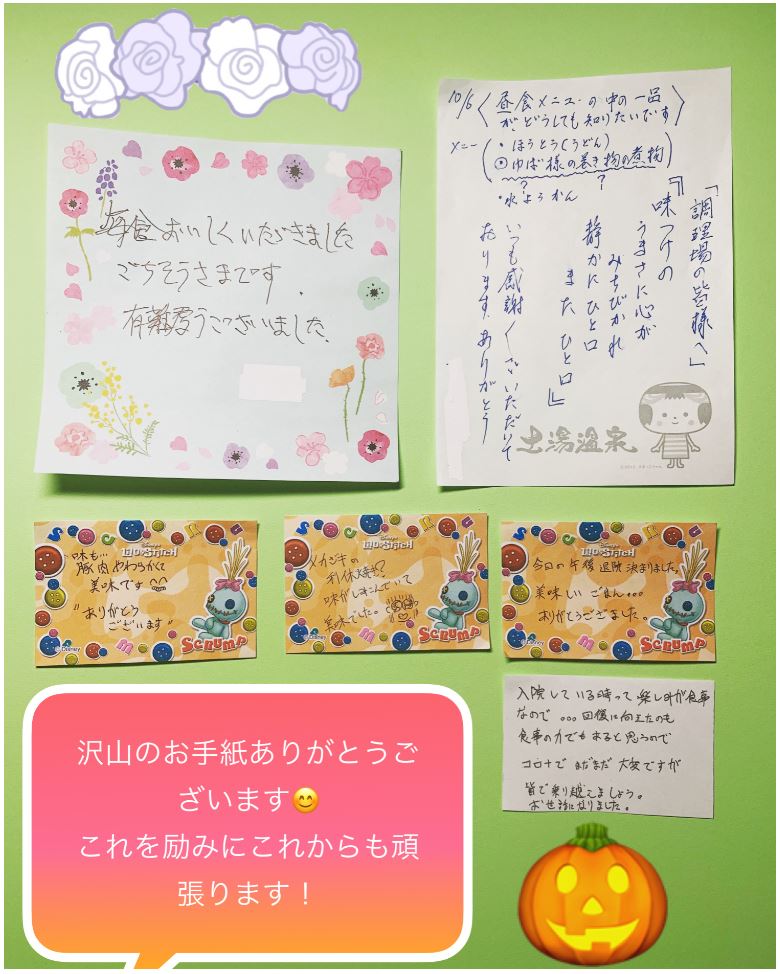 毎食おいしくいただきました
ごちそうさまです.
有難うございました.
10/6 〈昼食メニューの中の一品
が、どうしても知りたいです〉
メニュー
・ほうとう(うどん)
◉ゆば様の巻き物の煮物
? ?
・水ようかん
「調理場の皆様へ」
『味つけの
うまさに心が
みちびかれ
静かにひと口
またひと口』
いつも感謝してさいただいて
おります ありがとう
土湯温泉
Disney's
LILO & STITCH
味も...
豚肉やわらかくて
美味です
"ありがとう
ございます"
© Disney
SCRUMP
Disney's
LILO & STITCH
メカジキの
利休焼き!?
味がしみこんでいて
美味でした。
© Disney
SCRUMP
Disney's
LILO & STITCH
今日の午後退院決まりました。
美味しいごはん...
ありがとうございました。
© Disney
SCRUMP
入院している時って楽しみが食事
なので 。。。回復に向えたのも
食事の力でもあると思うので
コロナでまだまだ大変ですが
皆で乗り越えましょう。
お世話になりました。
沢山のお手紙ありがとうご
ざいます😊
これを励みにこれからも頑
張ります！